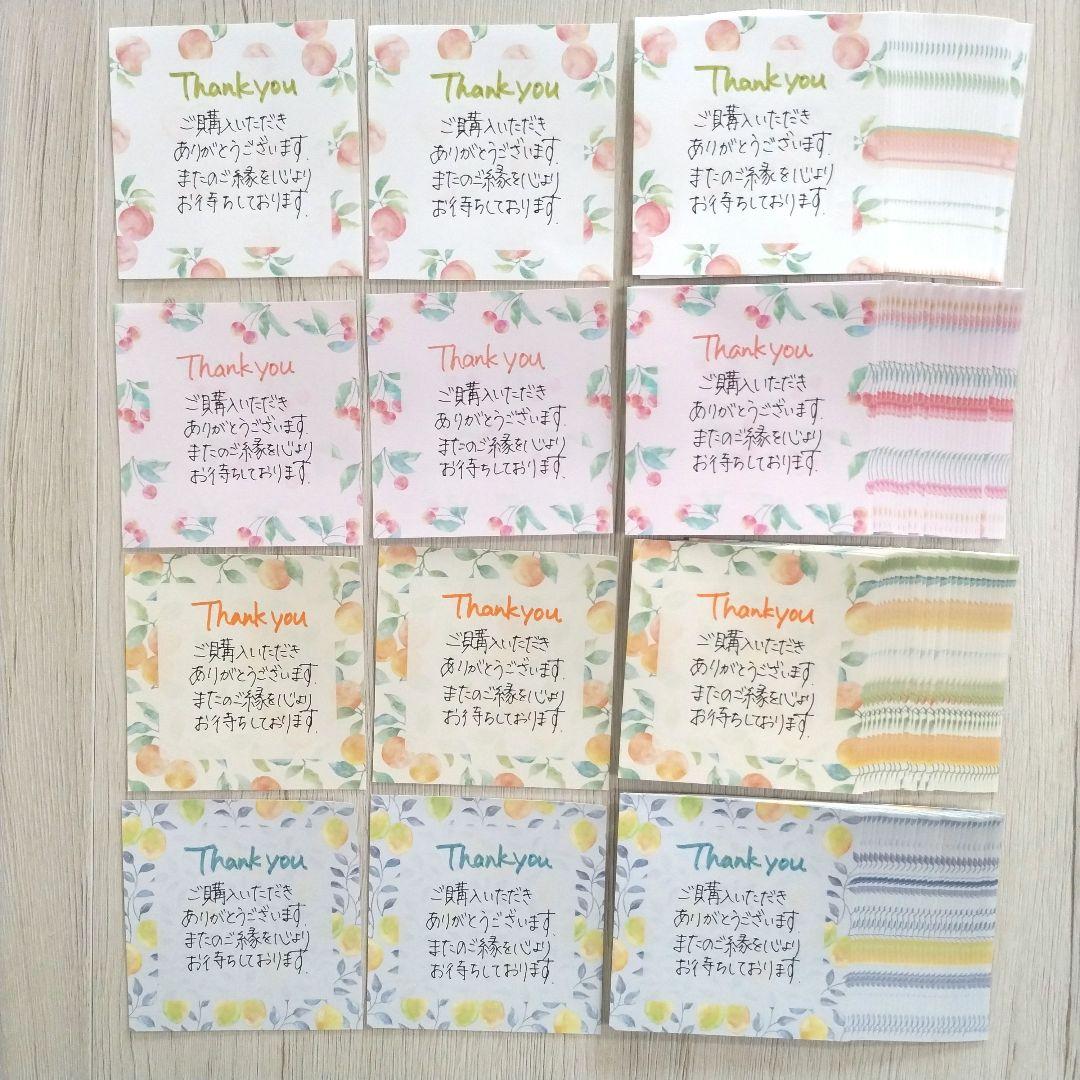 Thank you
ご購入いただき
ありがとうございます.
またのご縁を心より
お待ちしております.
Thank you
ご購入いただき
ありがとうございます.
またのご縁を心より
お待ちしております.
Thank you
ご購入いただき
ありがとうございます.
またのご縁を心より
お待ちしております.
Thank you
ご購入いただき
ありがとうございます.
またのご縁を心より
お待ちしております.
Thank you
ご購入いただき
ありがとうございます.
またのご縁を心より
お待ちしております.
Thank you
ご購入いただき
ありがとうございます.
またのご縁を心より
お待ちしております.
Thank you
ご購入いただき
ありがとうございます.
またのご縁を心より
お待ちしております.
Thank you
ご購入いただき
ありがとうございます.
またのご縁を心より
お待ちしております.
Thank you
ご購入いただき
ありがとうございます.
またのご縁を心より
お待ちしております.
Thank you
ご購入いただき
ありがとうございます.
またのご縁を心より
お待ちしております.
Thank you
ご購入いただき
ありがとうございます.
またのご縁を心より
お待ちしております.
Thank you
ご購入いただき
ありがとうございます.
またのご縁を心より
お待ちしております.